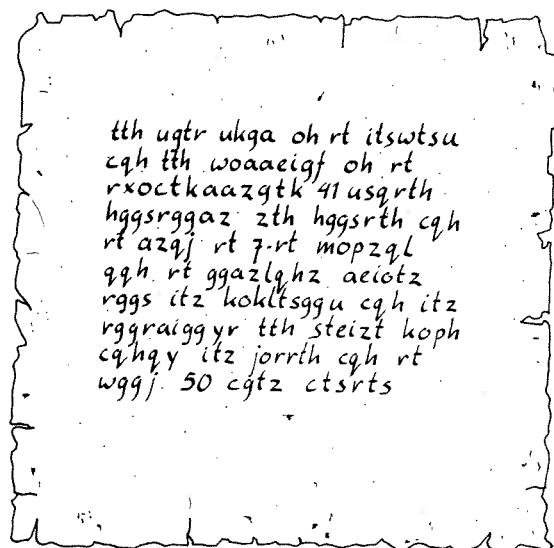 tth ugtr ukqa oh rt itswtsu
cqh tth woaaeigf oh rt
rxoctkaazgtk 41 usqrth
hggsrggaz zth hggsrth cqh
rt azqj rt 7-rt mopzql
qqh rt ggazlqhz aeiotz
rggs itz kohltsggu cqh itz
rggraiggyr tth steizt koph
cqhqy itz jorrth cqh rt
wggj 50 cgtz ctsrts